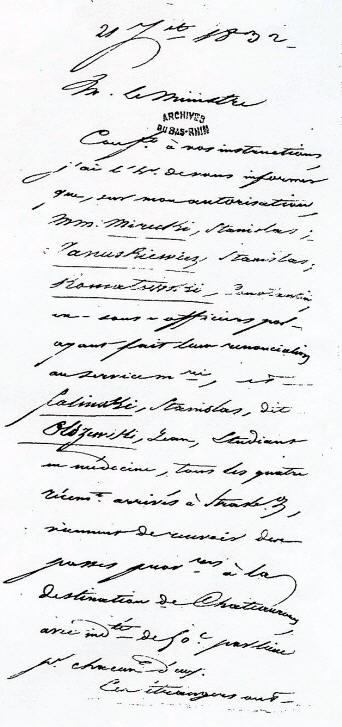 21 7bre 1832
M. le Ministre
ARCHIVES
DU BAS-RHIN
Conft à vos instructions,
j'ai l'hr. de vous informer
que, sur mon autorisation,
MM. Mirecki, Stanislas;
Januskiewicz, Stanislas;
ex-sous-officiers pol.
ayant fait leur renonciation
au service mre, et
Calinski, Stanislas, dit
Olszewski, Jean, Etudiant
en médecine, tous les quatre
récemt arrivés à Strasbg,
viennent de recevoir des
passes provres à la
destination de Chateauroux,
avec indté de 50c par lieue
pr chacun d'eux.
Ces étrangers ont